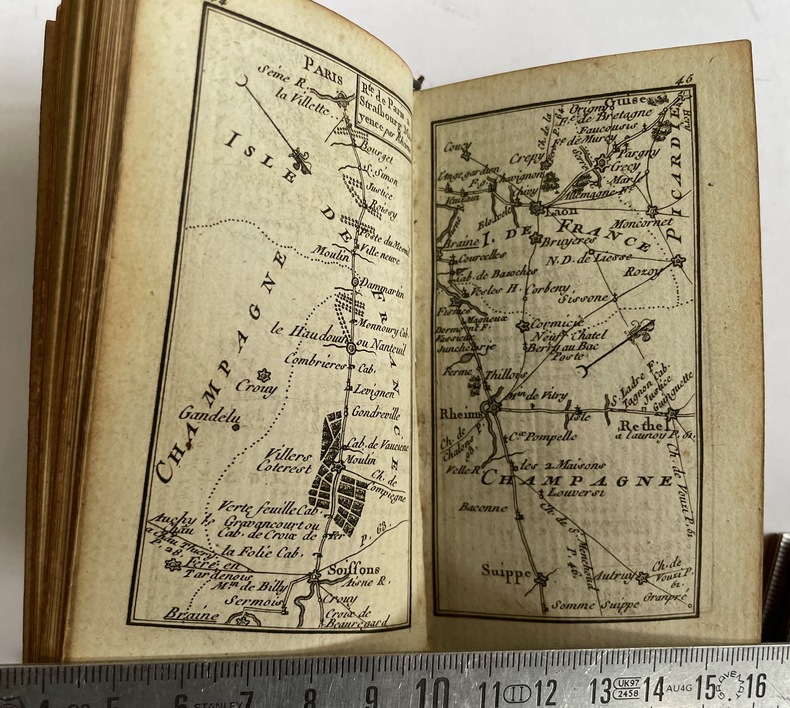 PARIS
Seine R.
la Villette
Rte de Paris a
Strasbourg
ISLE DE FRANCE
Bourget
Justice
Roissy
Poste du Mesnil
Ville neuve
Moulin
Dammartin
CHAMPAGNE
Mennoury Cab.
le Haudouin ou Nanteuil
Combrieres Cab.
Levignen
Crouy
Gondreville
Gandelu
Cab. de Vaucienne
Villers
Coterest
Moulin
Ch. de
Compiegne
Verte feuille Cab.
Gravancourt ou
Cab. de Croix de Fer
P. 63.
Auchy le
Chau
la Folie Cab.
P. 28.
Fere en
Tardenois
Soissons
Aisne R.
Mon de Billy
Sermois
Crouy
Braine
Croix de
Beauregard
45
Guise
Origny
Fe de Bretagne
Faucousis
Coucy
Crepy
Pargny
Crecy
Marle
Chavignon
Allemagne Fe
Laon
Moncornet
PICARDIE
I. DE FRANCE
Braine
Bruyeres
Courcelles
N. D. de Liesse
Rozoy
Cab. de Bazoches
Vesles H.
Corbeny
Sissone
Fismes
Magneux
Cormicie
Neuf Chatel
Berry au Bac
Poste
Ferme
Thillois
Min de Vitry
S. Ladre F.
Tagnon Cab.
Justice
Guinguette
Rheims
Isle
Rethel
a Launoy P. 61.
Ch. de
Chalons P.
Cse Pompelle
Velle R.
les 2. Maisons
CHAMPAGNE
Louversi
Ch. de Vouzi P. 61
Baconne
Ch. de S. Menehoud
P. 46.
Suippe
Autruy
Ch. de
Vouzi P.
61.
Granpré
Somme Suippe
4 5 6 STANLEY 7 8 9 10 11 12 13 UK97 2458 14 AU4G 15 16